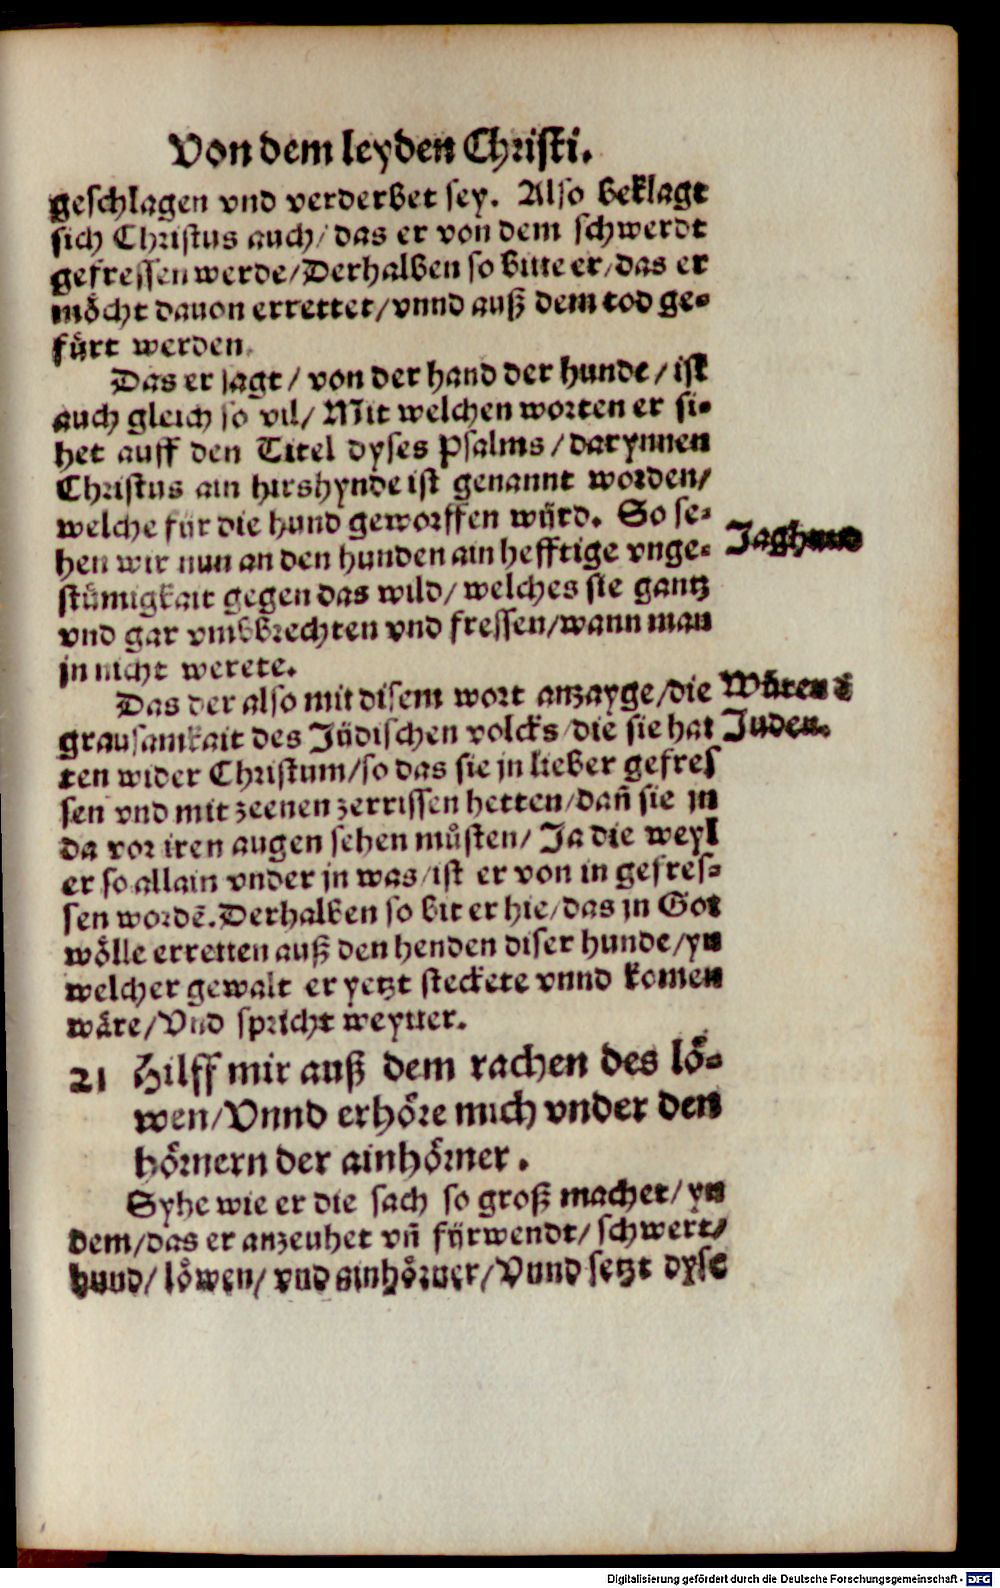 Von dem leyden Christi.
geschlagen vnd verderbet sey. Also beklagt
sich Christus auch/ das er von dem schwerdt
gefressen werde/ Derhalben so bitte er/ das er
möcht dauon errettet/ vnnd auß dem tod ge-
fürt werden.
Das er sagt/ von der hand der hunde/ ist
auch gleich so vil/ Mit welchen worten er si-
het auff den Titel dyses Psalms/ darynnen
Christus ain hirshynde ist genannt worden/
welche für die hund geworffen würd. So se-
hen wir nun an den hunden ain hefftige vnge-
Jaghund
stümigkait gegen das wild/ welches sie gantz
vnd gar vmbbrechten vnd fressen/ wann man
jn nicht werete.
Das der also mit disem wort anzayge/ die
Wüten
grausamkait des Jüdischen volcks/ die sie hat
Juden.
ten wider Christum/ so das sie jn lieber gefres
sen vnd mit zeenen zerrissen hetten/ dañ sie jn
da vor iren augen sehen muͦsten/ Ja die weyl
er so allain vnder jn was/ ist er von in gefres-
sen wordē. Derhalben so bit er hie/ das jn Got
wölle erretten auß den henden diser hunde/ yn
welcher gewalt er yetzt steckete vnnd komen
wäre/ Vnd spricht weytter.
21 Hilff mir auß dem rachen des lö-
wen/ Vnnd erhöre mich vnder den
hörnern der ainhörner.
Syhe wie er die sach so groß machet/ yn
dem/ das er anzeuhet vñ fürwendt/ schwert/
hund/ löwen/ vnd ainhörner/ Vnnd setzt dyse
Digitalisierung gefördert durch die Deutsche Forschungsgemeinschaft - DFG